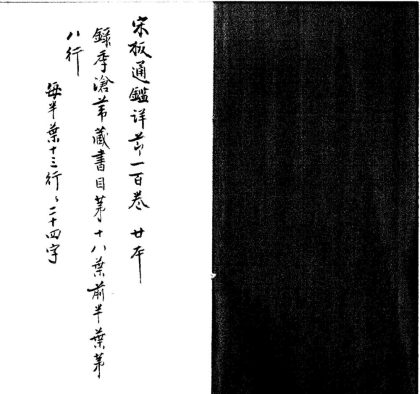 宋板通鑑详节一百卷 廿本
錄季滄苇藏書目苐十八葉前半葉苐
八行
每半葉十三行〻二十四字